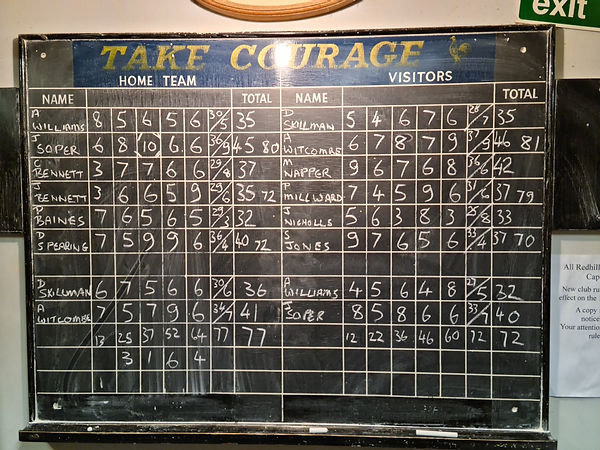 exit
TAKE COURAGE
HOME TEAM VISITORS
NAME TOTAL NAME TOTAL
A WILLIAMS 8 5 6 5 6 30/5 35 D SKILLMAN 5 4 6 7 6 28/7 35
J SOPER 6 8 10 6 6 36/9 45 80 A WITCOMBE 6 7 8 7 9 37/9 46 81
C BENNETT 3 7 7 6 6 29/8 37 M NAPPER 9 6 7 6 8 36/6 42
J BENNETT 3 6 6 5 9 29/6 35 72 P MILLWARD 7 4 5 9 6 31/6 37 79
P BAINES 7 6 5 6 5 29/3 32 J NICHOLLS 5 6 3 8 3 25/8 33
D SPEARING 7 5 9 9 6 36/4 40 72 JONES 9 7 6 5 6 33/4 37 70
D SKILLMAN 6 7 5 6 6 30/6 36 A WILLIAMS 4 5 6 4 8 27/5 32
A WITCOMBE 7 5 7 9 6 34/7 41 J SOPER 8 5 8 6 6 33/7 40
13 25 37 52 64 77 77 12 22 36 46 60 72 72
3 1 6 4
1
All Redhill
Cap
New club ru
effect on the
A copy
notice
Your attention
rule